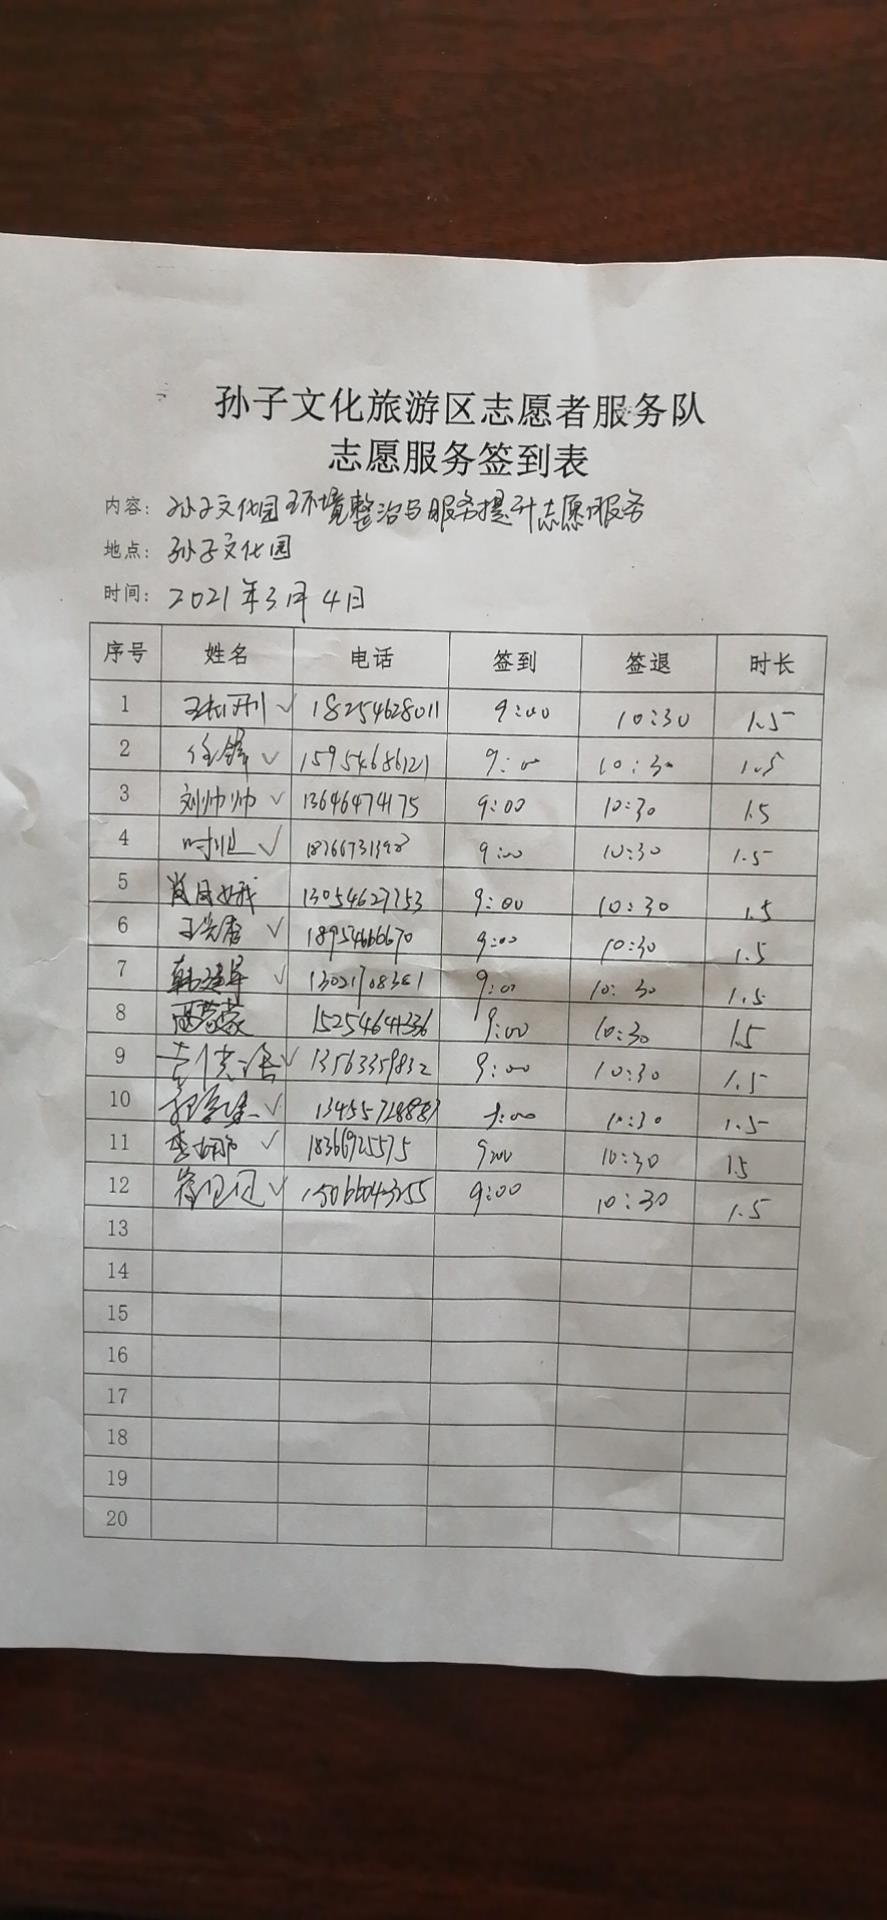 孙子文化旅游区志愿者服务队
志愿服务签到表
内容: 孙子文化园环境整治与服务提升志愿服务
地点: 孙子文化园
时间: 2021年3月4日
序号 姓名 电话 签到 签退 时长
1 18254628011 9:00 10:30 1.5
2 任锋 15954686121 9:00 10:30 1.5
3 刘帅帅 13646474175 9:00 10:30 1.5
4 9:00 10:30 1.5
5 13054627753 9:00 10:30 1.5
6 18954666670 9:00 10:30 1.5
7 9:00 10:30 1.5
8 15254641336 9:00 10:30 1.5
9 13563359832 9:00 10:30 1.5
10 13455728887 10:30 1.5
11 李娜 18366925575 9:00 10:30 1.5
12 9:00 10:30 1.5
13
14
15
16
17
18
19
20